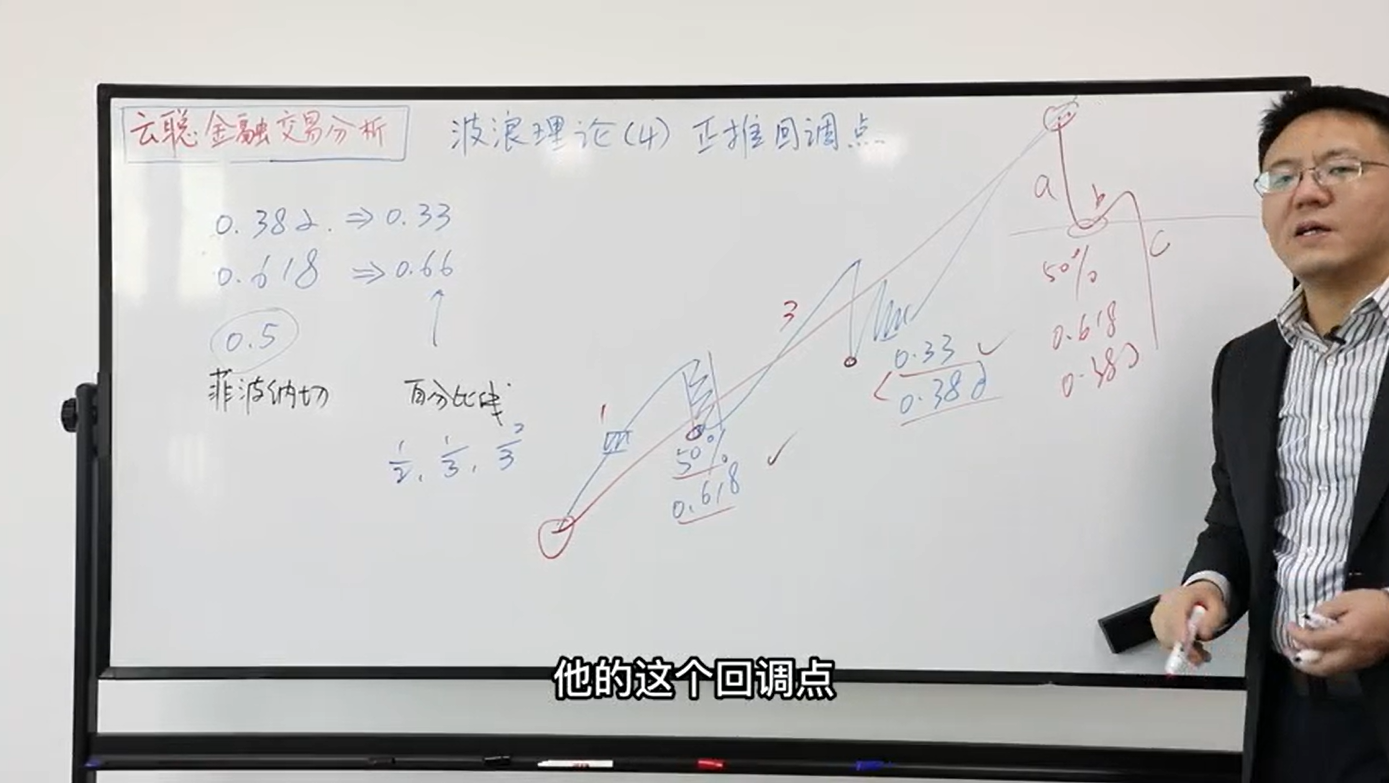 云聪金融交易分析
波浪理论(4) 正推回调点
0.382 ⇒ 0.33
0.618 ⇒ 0.66
0.5
菲波纳切
百分比线
1/2, 1/3, 2/3
1
50%
0.618
3
0.33
0.382
a
b
c
50%
0.618
0.382
他的这个回调点